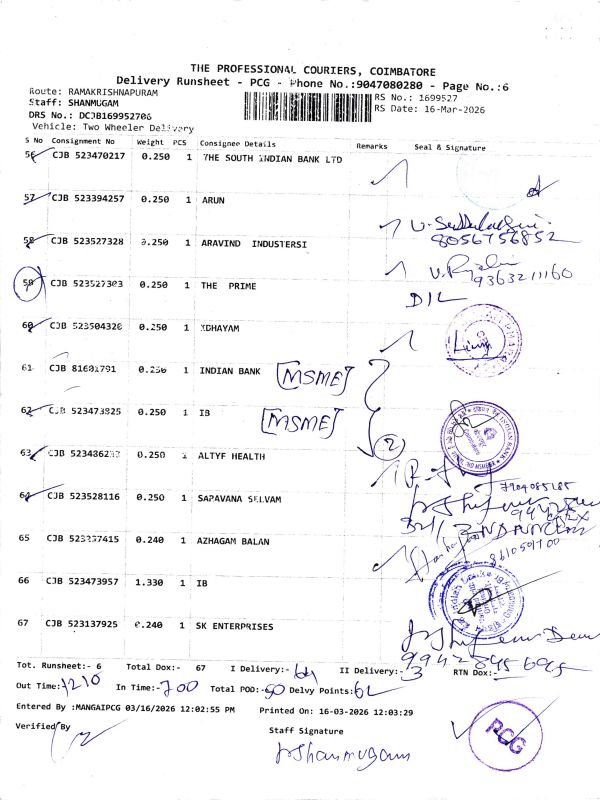 THE PROFESSIONAL COURIERS, COIMBATORE
Delivery Runsheet - PCG - Phone No.:9047080280 - Page No.:6
Route: RAMAKRISHNAPURAM
Staff: SHANMUGAM
RS No.: 1699527
DRS No.: DCJB169952706
RS Date: 16-Mar-2026
Vehicle: Two Wheeler Delivery
S No Consignment No Weight PCS Consignee Details Remarks Seal & Signature
56 CJB 523470217 0.250 1 THE SOUTH INDIAN BANK LTD
57 CJB 523394257 0.250 1 ARUN
8056756852
58 CJB 523527328 0.250 1 ARAVIND INDUSTERSI
9363211160
59 CJB 523527303 0.250 1 THE PRIME
D/L
60 CJB 523504320 0.250 1 XDHAYAM
61 CJB 81601791 0.250 1 INDIAN BANK [MSME]
62 CJB 523473825 0.250 1 IB [MSME]
2
63 CJB 1 ALTYF HEALTH 0.250
7904085185
64 CJB 523528116 0.250 1 SARAVANA SELVAM
65 CJB 0.240 1 AZHAGAM BALAN
66 CJB 523473957 1.330 1 IB
67 CJB 523137925 0.240 1 SK ENTERPRISES
Tot. Runsheet:- 6 Total Dox:- 67 I Delivery:- 64 II Delivery:- 3 RTN Dox:-
Out Time:- 1210 In Time:- 700 Total POD:- 60 Delvy Points: 62
Entered By :MANGAIPCG 03/16/2026 12:02:55 PM Printed On: 16-03-2026 12:03:29
Verified By Staff Signature
Shanmugam
PCG